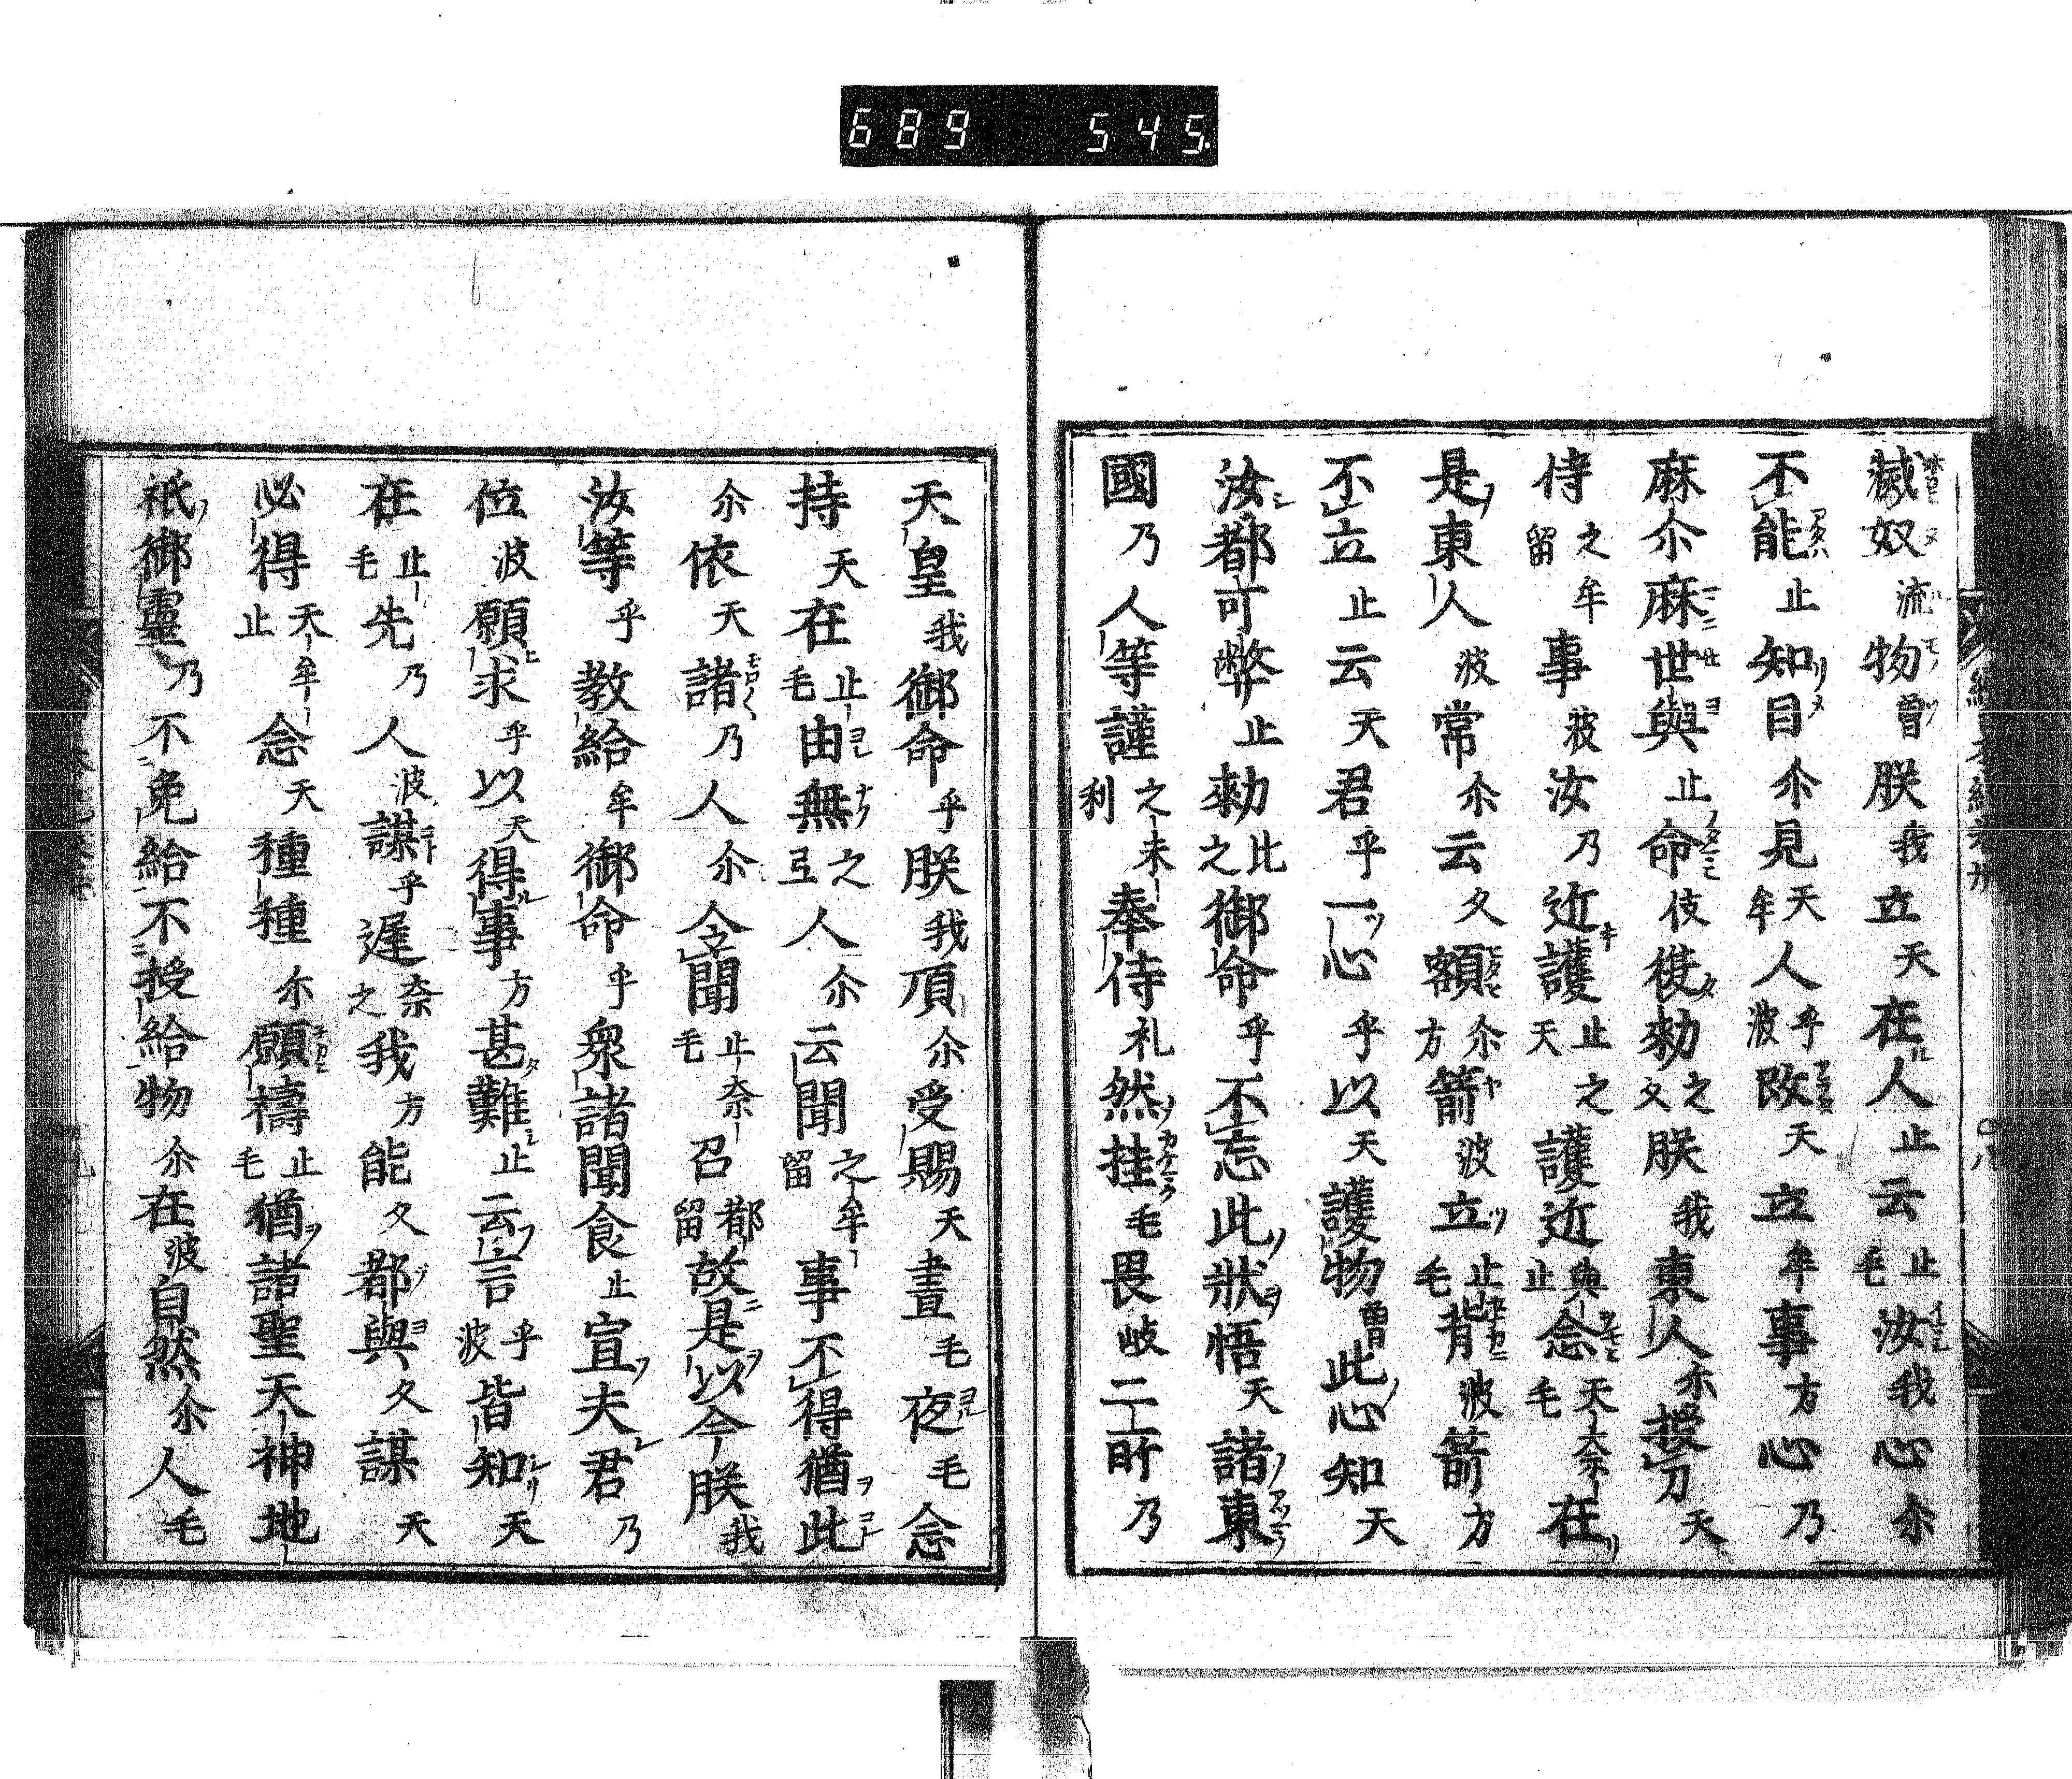 689 545
滅奴流物曾朕我立天在人止云止毛汝我心尓
不能止知目尓見天牟人乎波改天立牟事方心乃
麻尓麻世與止命伎復勅之久朕我東人尓授刀天
侍之留牟事波汝乃近護止之天護近與止念天奈毛在
是東人波常尓云久額尓方箭波立止毛背波箭方
不立止云天君乎一心乎以天護物曾此心知天
汝都可弊止勅比之御命乎不忘此狀悟天諸東
國乃人等謹之利未奉侍礼然挂毛畏岐二所乃
天皇我御命乎朕我頂尓受賜天晝毛夜毛念
持天在止毛由無之弖人尓云聞之留牟事不得猶此
尓依天諸乃人尓令聞止毛奈召都留故是以今朕我
汝等乎教給牟御命乎衆諸聞食止宣夫君乃
位波願求乎以天得事方甚難止云言乎波皆知天
在止毛先乃人波謀乎遲奈之我方能久都與久謀天
必得天止牟念天種種尓願禱止毛猶諸聖天神地
祇御靈乃不免給不授給物尓在波自然尓人毛